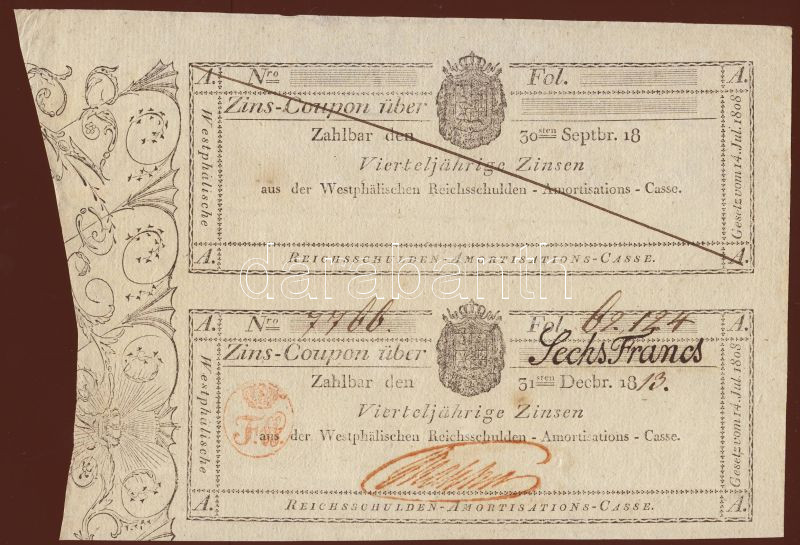 A. Nro Fol. A.
Zins-Coupon über
Zahlbar den 30sten Septbr. 18
Vierteljährige Zinsen
aus der Westphälischen Reichsschulden - Amortisations - Casse.
Westphälische
Gesetz vom 14. Jul. 1808
A. Reichsschulden-Amortisations-Casse. A.
darabanth
A. Nro 7766. Fol. 62.124 A.
Zins-Coupon über Sechs Francs
Zahlbar den 31sten Decbr. 1813.
Vierteljährige Zinsen
aus der Westphälischen Reichsschulden - Amortisations - Casse.
Westphälische
Gesetz vom 14. Jul. 1808
A. Reichsschulden-Amortisations-Casse. A.